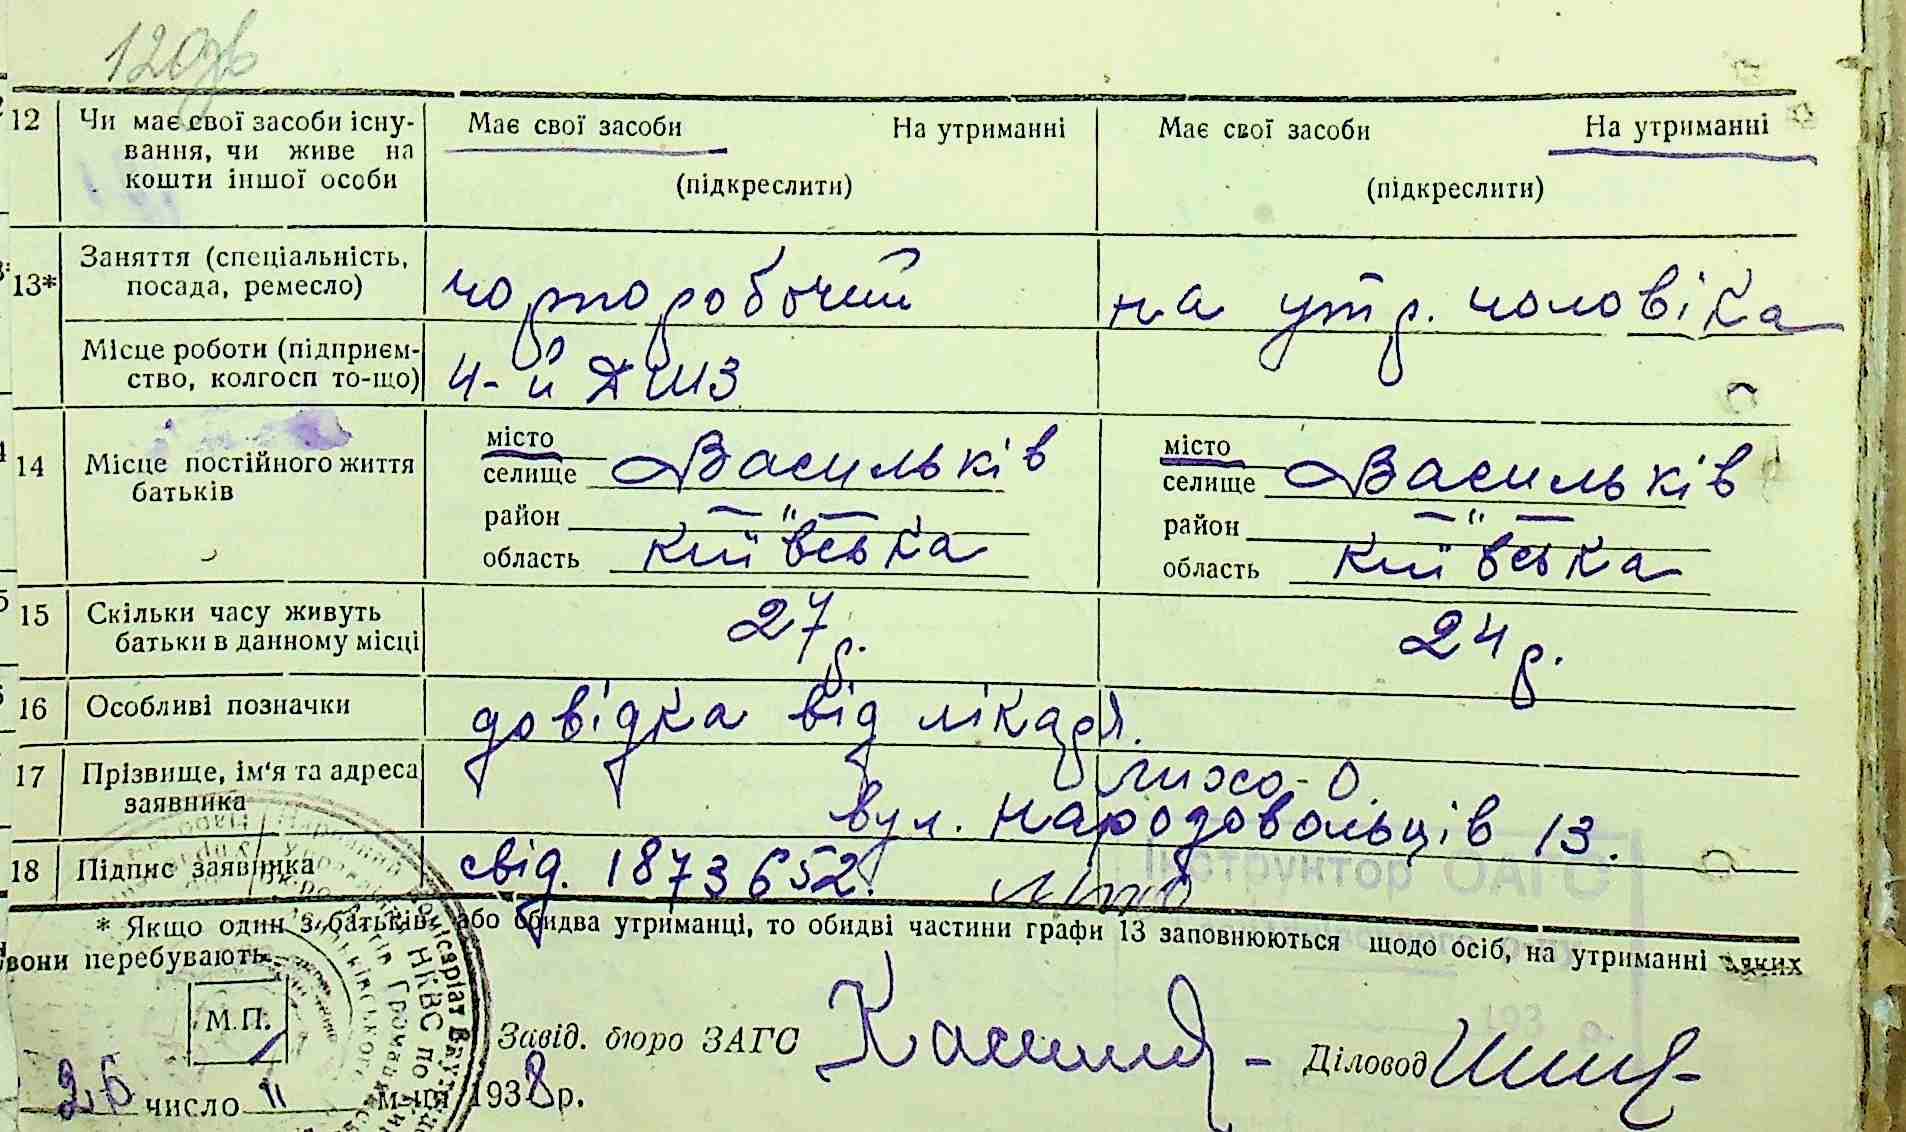 120зв
12 Чи має свої засоби існу- Має свої засоби На утриманні Має свої засоби На утриманні
вання, чи живе на
кошти іншої особи (підкреслити) (підкреслити)
13* Заняття (спеціальність, чорноробочий на утр. чоловіка
посада, ремесло)
Місце роботи (підприєм- 4-й ДШЗ
ство, колгосп то-що)
14 Місце постійного життя місто Васильків місто Васильків
батьків селище селище
район — " — район — " —
область Київська область Київська
15 Скільки часу живуть 27 р. 24 р.
батьки в данному місці
16 Особливі позначки довідка від лікаря.
17 Прізвище, ім'я та адреса
заявника вул. народовольців 13.
18 Підпис заявника свід. 1873652.
* Якщо один з батьків або обидва утриманці, то обидві частини графи 13 заповнюються щодо осіб, на утриманні яких
вони перебувають.
М.П.
Завід. бюро ЗАГС Діловод
26 число 11 м-ця 1938 р.
Інструктор ОАГС
193 р.